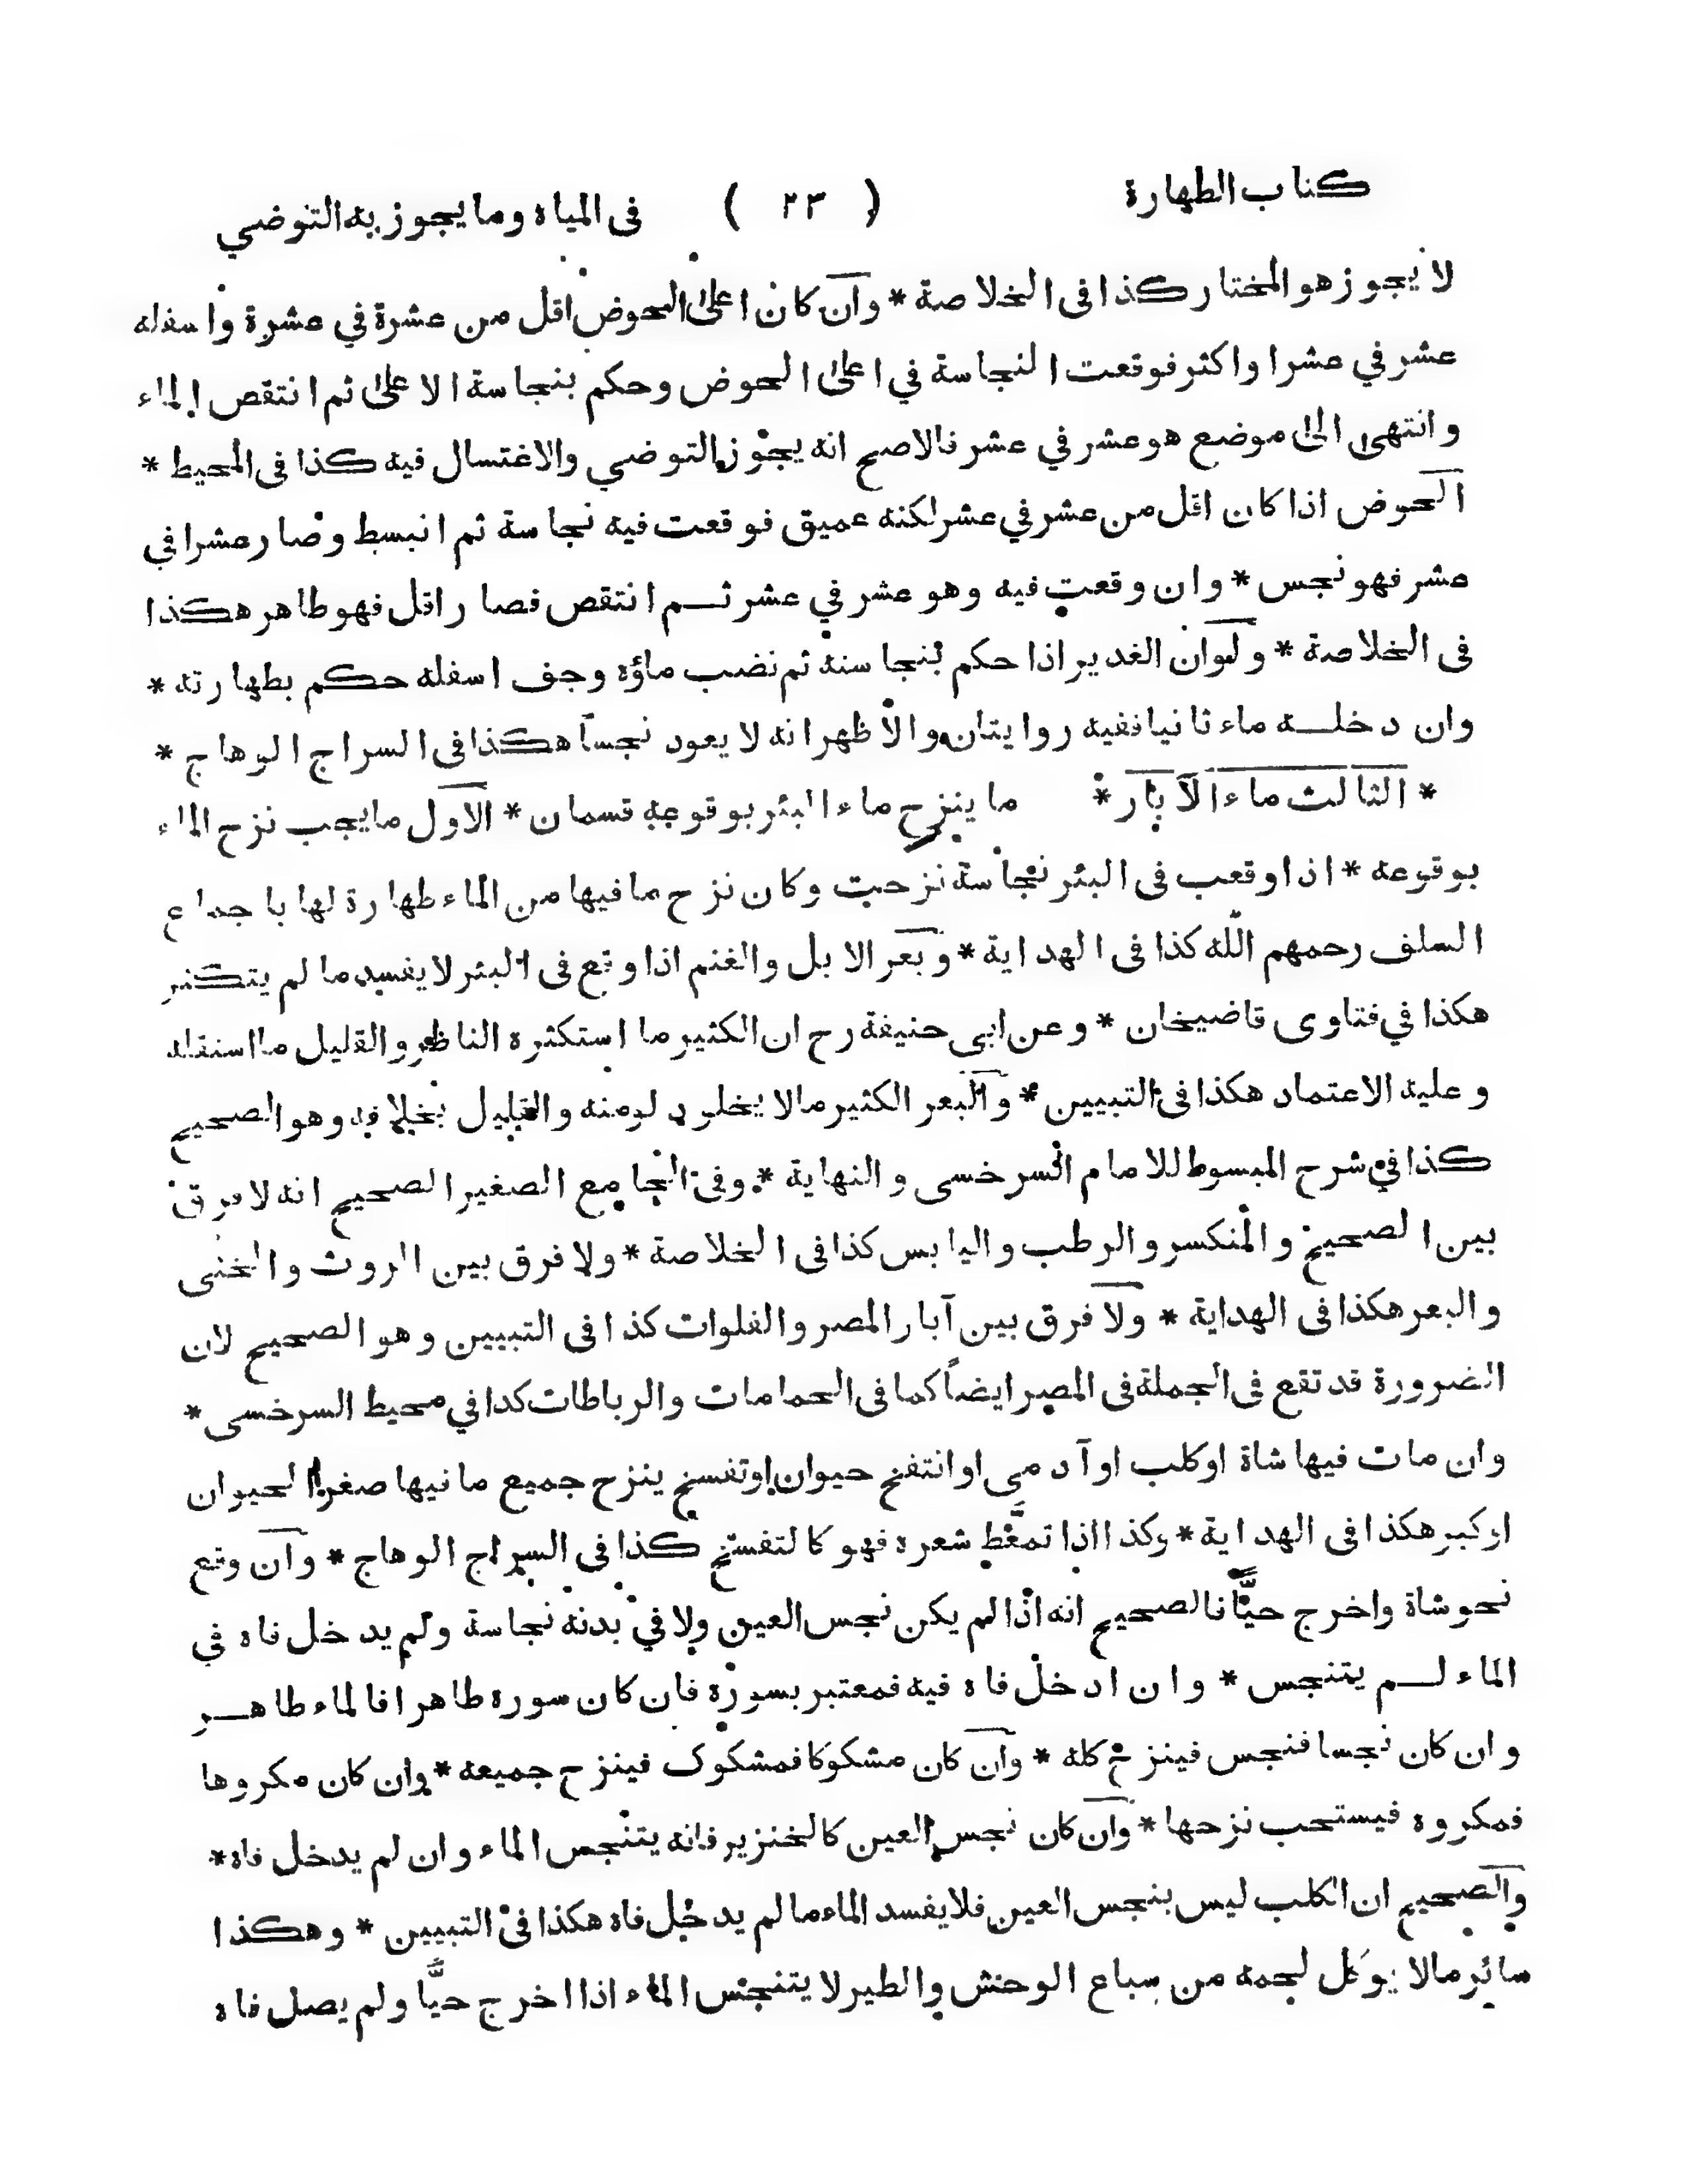 كتاب الطهارة ( ٢٣ ) فى المياه وما يجوز به التوضي
لا يجوز هو المختار كذا فى الخلاصة * وان كان اعلى الحوض اقل من عشرة في عشرة واسفله
عشر في عشرا واكثر فوقعت النجاسة في اعلى الحوض وحكم بنجاسة الاعلى ثم انتقص الماء
وانتهى الى موضع هو عشر في عشر فالاصح انه يجوز التوضي والاغتسال فيه كذا فى المحيط *
الحوض اذا كان اقل من عشر في عشر لكنه عميق فوقعت فيه نجاسة ثم انبسط وصار عشرا في
عشر فهو نجس * وان وقعت فيه وهو عشر في عشر ثم انتقص فصار اقل فهو طاهر هكذا
فى الخلاصة * ولو ان الغدير اذا حكم بنجاسته ثم نضب ماؤه وجف اسفله حكم بطهارته *
وان دخله ماء ثانيا ففيه روايتان والاظهر انه لا يعود نجساً هكذا فى السراج الوهاج *
* الثالث ماء الآبار * ما ينزح ماء البئر بوقوعه قسمان * الاول ما يجب نزح الماء
بوقوعه * اذا وقعت فى البئر نجاسة نزحت وكان نزح ما فيها من الماء طهارة لها باجماع
السلف رحمهم الله كذا فى الهداية * وبعر الابل والغنم اذا وقع فى البئر لا يفسد ما لم يتكثر
هكذا في فتاوى قاضيخان * وعن ابى حنيفة رح ان الكثير ما استكثره الناظر والقليل ما استقله
وعليه الاعتماد هكذا فى التبيين * والبعر الكثير ما لا يخلو دلو منه والقليل بخلافه وهو الصحيح
كذا في شرح المبسوط للامام السرخسى والنهاية * وفى الجامع الصغير الصحيح انه لا فرق
بين الصحيح والمنكسر والرطب واليابس كذا فى الخلاصة * ولا فرق بين الروث والخثى
والبعر هكذا فى الهداية * ولا فرق بين آبار المصر والفلوات كذا فى التبيين وهو الصحيح لان
الضرورة قد تقع فى الجملة فى المصر ايضاً كما فى الحمامات والرباطات كذا في محيط السرخسى *
وان مات فيها شاة او كلب او آدمى او انتفخ حيوان او تفسخ ينزح جميع ما فيها صغر الحيوان
او كبر هكذا فى الهداية * وكذا اذا تمعّط شعره فهو كالتفسخ كذا فى السراج الوهاج * وان وقع
نحو شاة واخرج حيًّا فالصحيح انه اذا لم يكن نجس العين ولا في بدنه نجاسة ولم يدخل فاه في
الماء لم يتنجس * وان ادخل فاه فيه فمعتبر بسوره فان كان سوره طاهرا فالماء طاهر
وان كان نجسا فنجس فينزح كله * وان كان مشكوكا فمشكوك فينزح جميعه * وان كان مكروها
فمكروه فيستحب نزحها * وان كان نجس العين كالخنزير فانه يتنجس الماء وان لم يدخل فاه *
والصحيح ان الكلب ليس بنجس العين فلا يفسد الماء ما لم يدخل فاه هكذا فى التبيين * وهكذا
سائر مالا يوكل لحمه من سباع الوحش والطير لا يتنجس الماء اذا اخرج حيًّا ولم يصل فاه